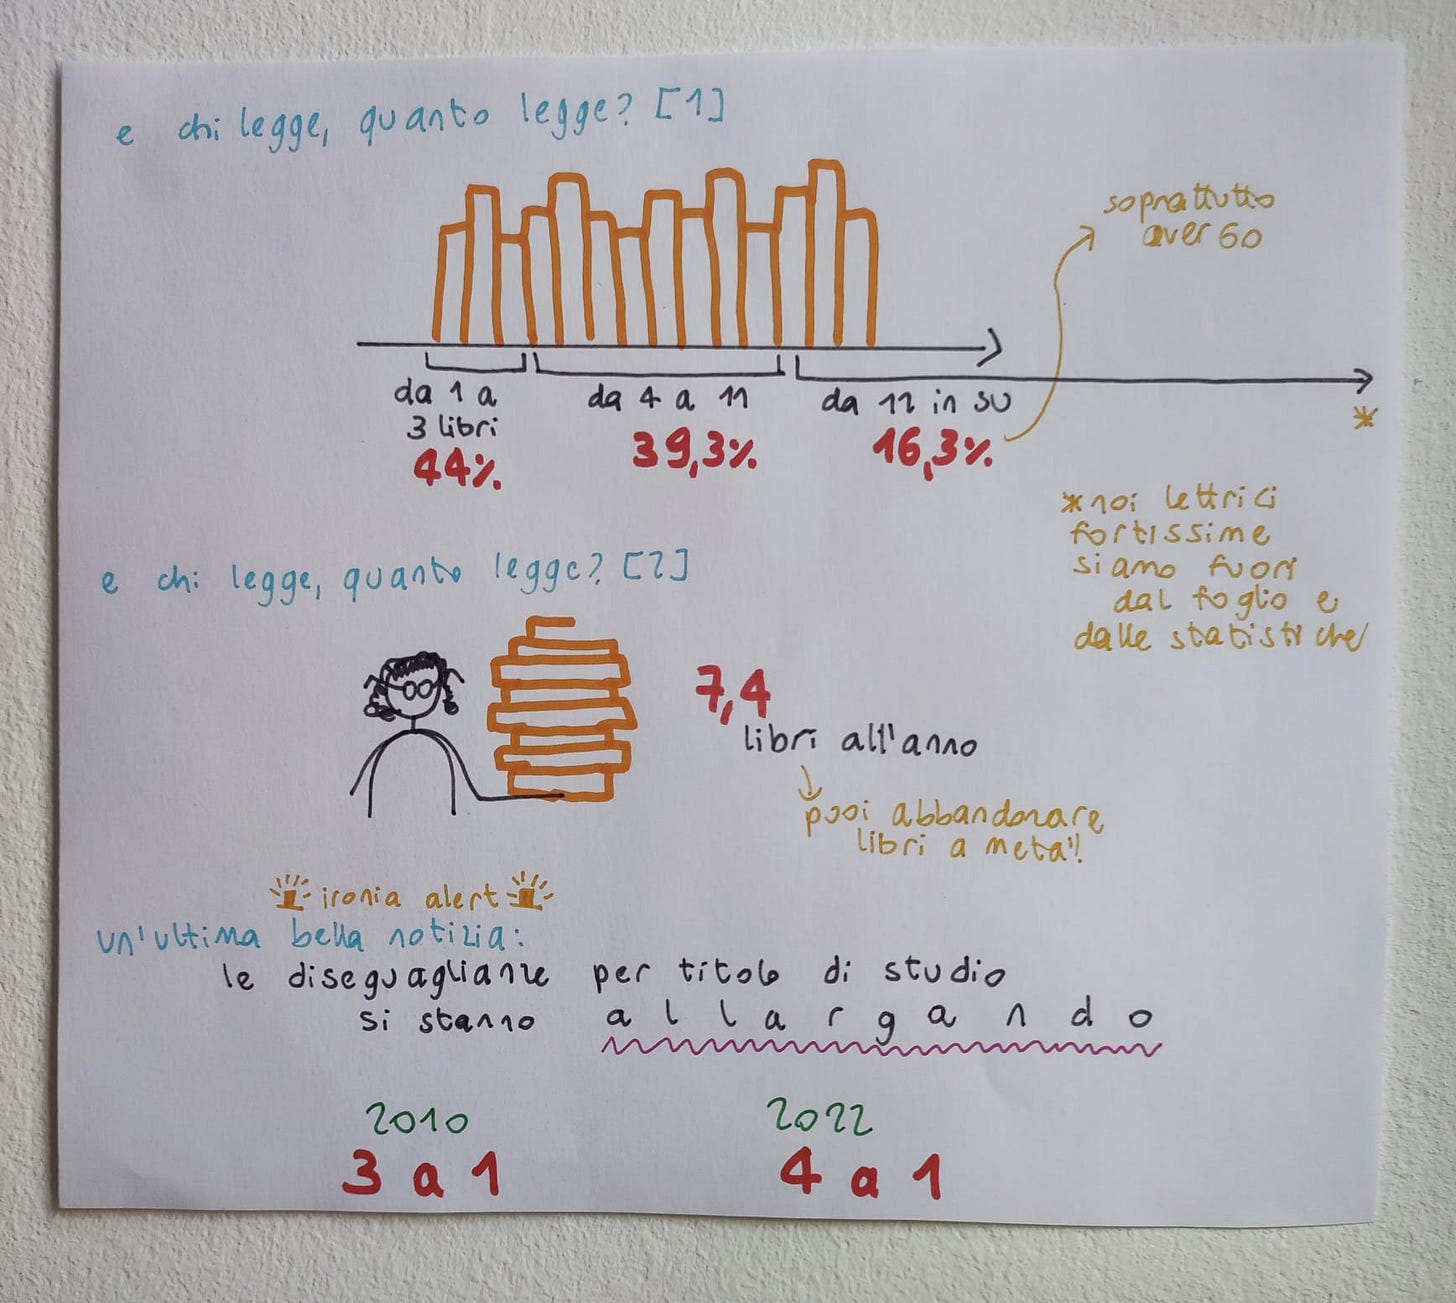 e chi legge, quanto legge? [1]
soprattutto
over 60
da 1 a
3 libri
44%
da 4 a 11
39,3%
da 12 in su
16,3%
*
*noi lettrici
fortissime
siamo fuori
dal foglio e
dalle statistiche
e chi legge, quanto legge? [2]
7,4
libri all'anno
puoi abbandonare
libri a metà!
ironia alert
un'ultima bella notizia:
le diseguaglianze per titolo di studio
si stanno allargando
2010
3 a 1
2022
4 a 1